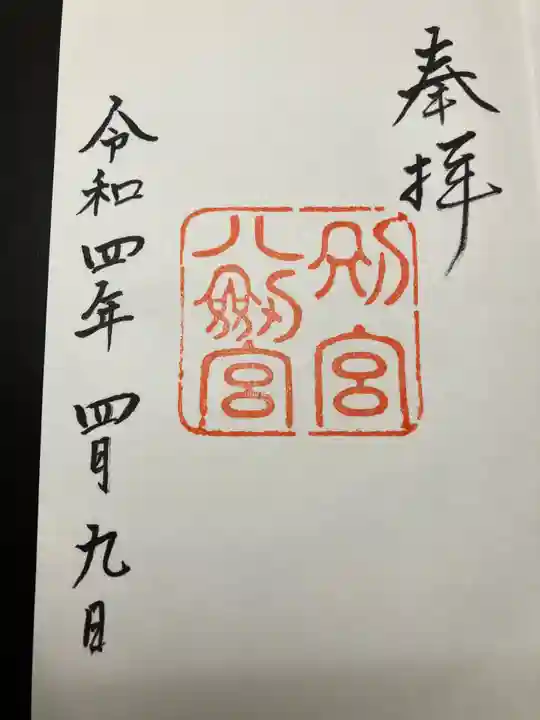 奉拝
別宮
八剱宮
令和四年 四月九日